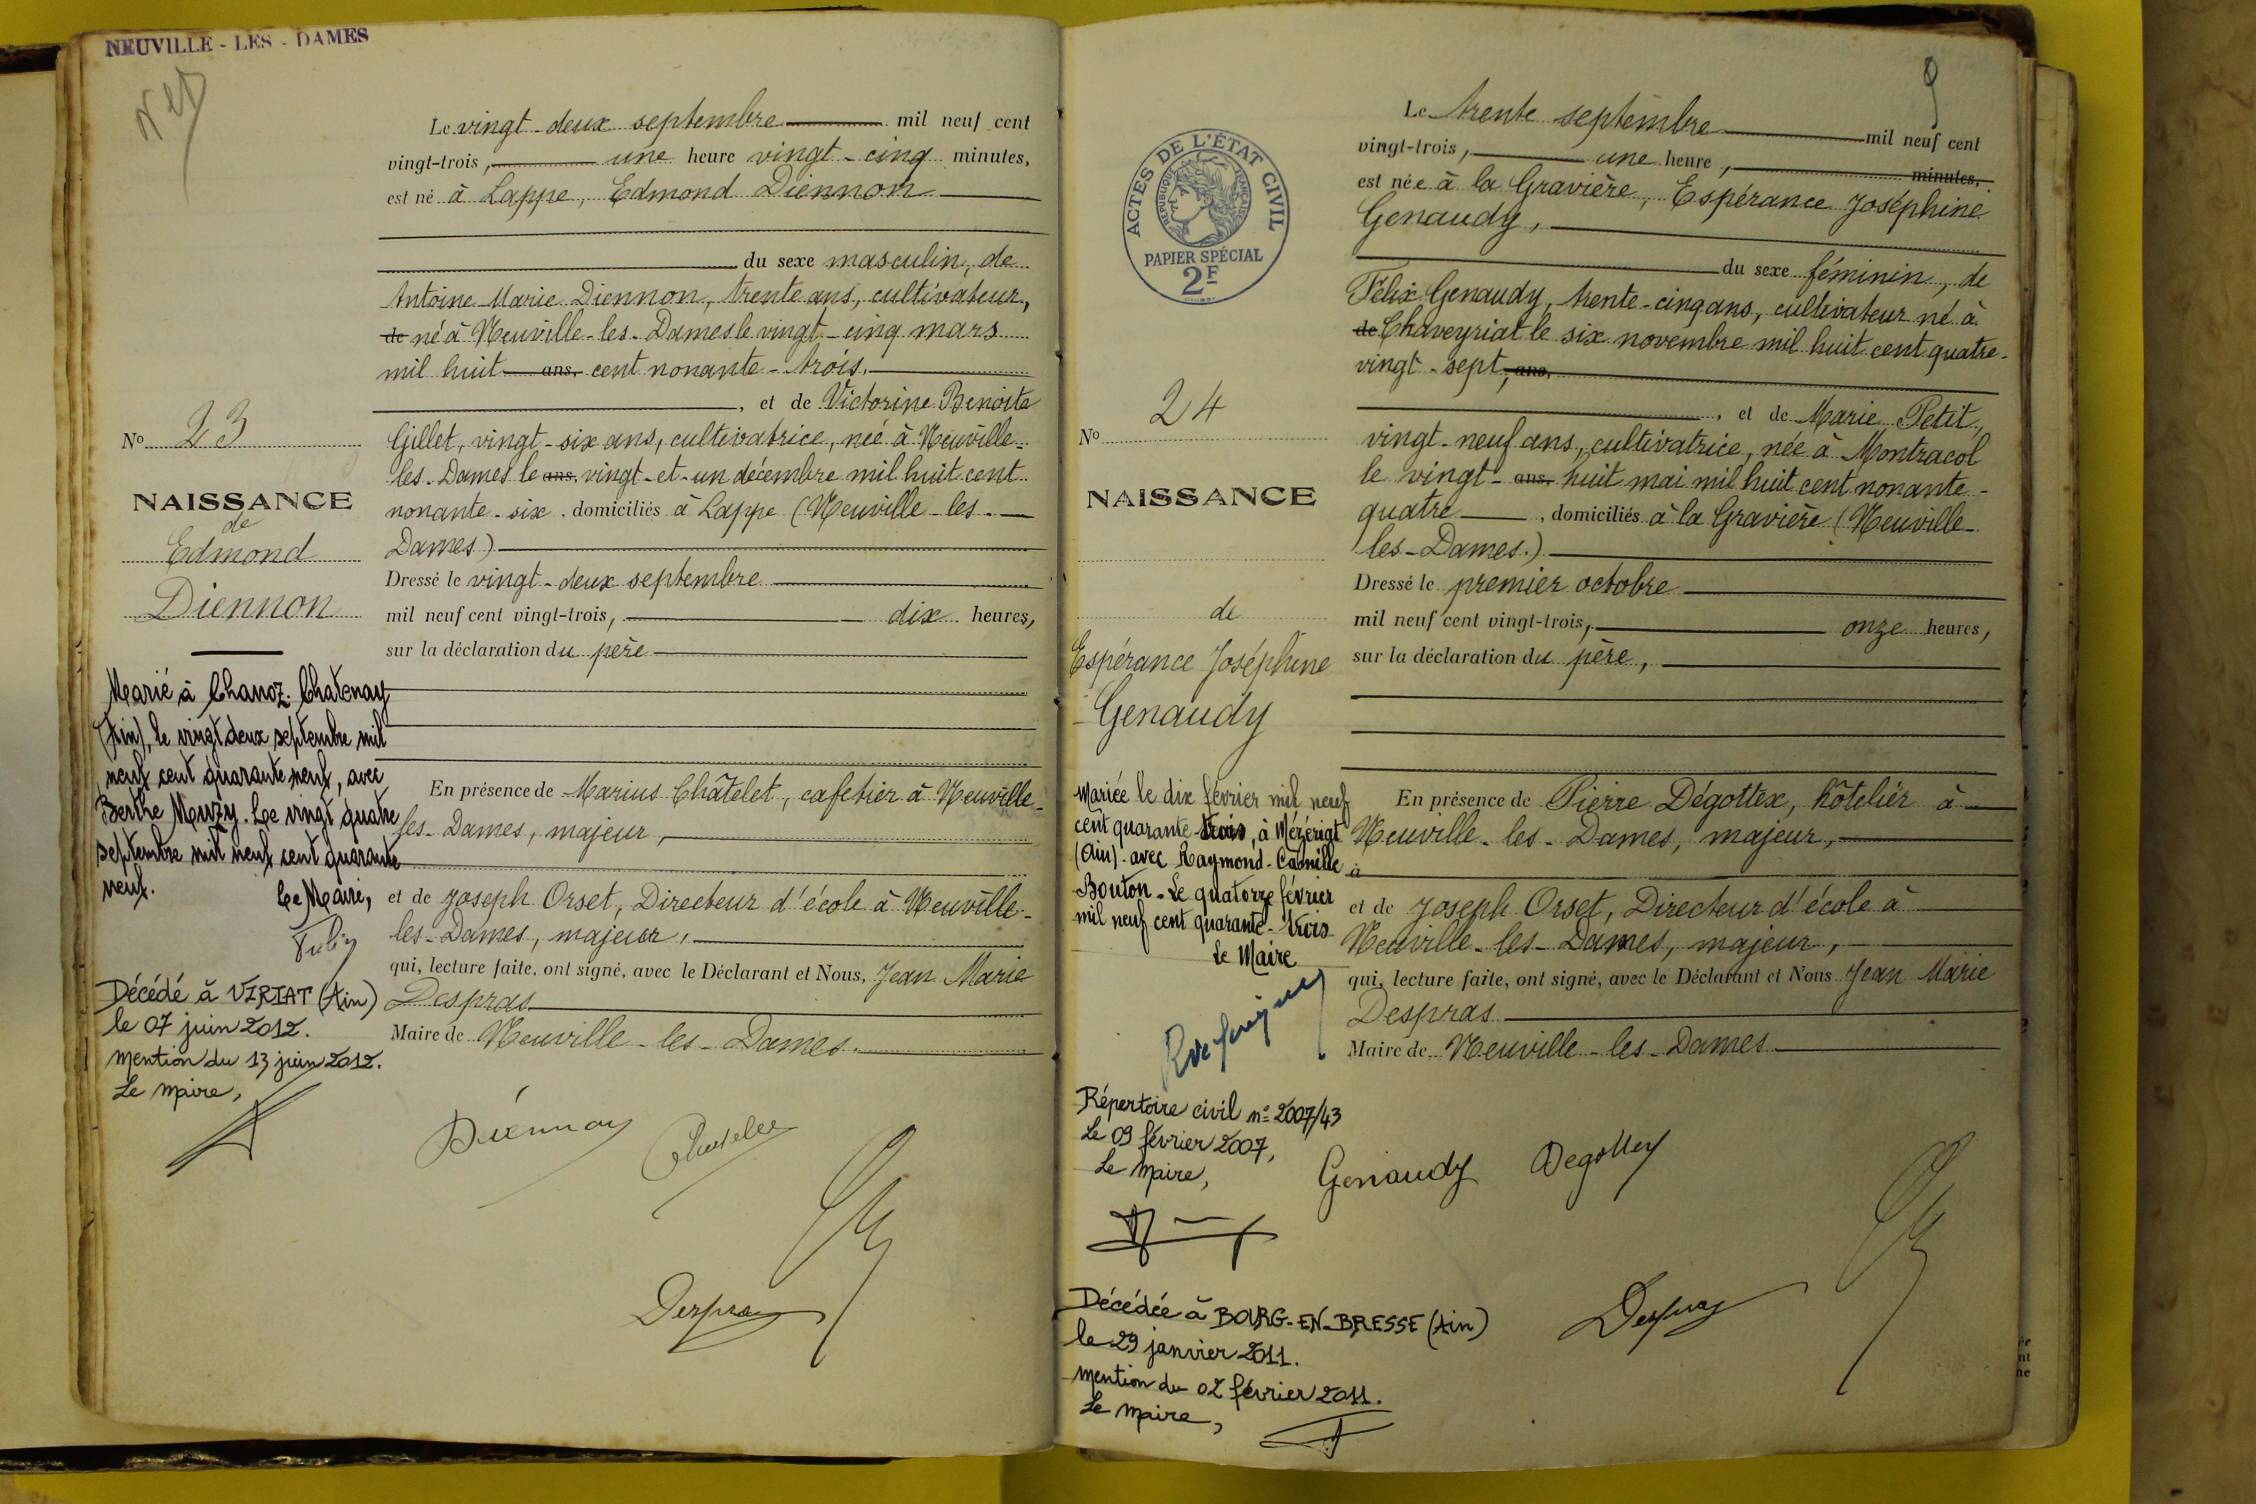 NEUVILLE - LES - DAMES
Le vingt-deux septembre mil neuf cent
vingt-trois, une heure vingt-cinq minutes,
est né à Lappe, Edmond Diennon
du sexe masculin, de
Antoine Marie Diennon, trente ans, cultivateur,
de né à Neuville-les-Dames le vingt-cinq mars
mil huit ans, cent nonante-trois.
, et de Victorine Benoite
Gillet, vingt-six ans, cultivatrice, née à Neuville-
les-Dames le ans, vingt-et-un décembre mil huit cent
nonante-six. domiciliés à Lappe (Neuville-les-
Dames)
Dressé le vingt-deux septembre
mil neuf cent vingt-trois, dix heures,
sur la déclaration du père
En présence de Marius Châtelet, cafetier à Neuville-
les-Dames, majeur,
et de Joseph Orset, Directeur d'école à Neuville-
les-Dames, majeur,
qui, lecture faite, ont signé, avec le Déclarant et Nous, Jean Marie
Despras
Maire de Neuville-les-Dames.
No 23
NAISSANCE
de
Edmond
Diennon
Marié à Chanoz-Chatenay
(Ain), le vingt deux septembre mil
neuf cent quarante neuf, avec
Berthe Meuzy. Le vingt quatre
septembre mil neuf cent quarante
neuf.
Le Maire,
Décédé à VIRIAT (Ain)
le 07 juin 2012.
mention du 13 juin 2012.
Le maire,
Diennon
Chatelet
Despras
9
Le trente septembre mil neuf cent
vingt-trois, une heure, minutes,
est née à la Gravière, Espérance Joséphine
Genaudy,
du sexe féminin, de
Félix Genaudy, trente-cinq ans, cultivateur né à
de Chaveyriat le six novembre mil huit cent quatre-
vingt-sept, ans,
, et de Marie Petit,
vingt-neuf ans, cultivatrice, née à Montracol
le vingt- ans, huit mai mil huit cent nonante-
quatre, domiciliés à la Gravière (Neuville-
les-Dames.)
Dressé le premier octobre
mil neuf cent vingt-trois, onze heures,
sur la déclaration du père,
En présence de Pierre Dégottex, hôtelier à
Neuville-les-Dames, majeur,
à
et de Joseph Orset, Directeur d'école à
Neuville-les-Dames, majeur,
qui, lecture faite, ont signé, avec le Déclarant et Nous Jean Marie
Despras
Maire de Neuville-les-Dames
ACTES DE L'ÉTAT CIVIL
RÉPUBLIQUE FRANÇAISE
PAPIER SPÉCIAL
2F
No 24
NAISSANCE
de
Espérance Joséphine
Genaudy
Mariée le dix février mil neuf
cent quarante-trois, à Mézériat
(Ain). avec Raymond-Camille
Bouton. Le quatorze février
mil neuf cent quarante-trois
Le Maire
Répertoire civil n° 2007/43
Le 09 février 2007,
Le maire,
Décédée à BOURG-EN-BRESSE (Ain)
le 29 janvier 2011.
mention du 02 février 2011.
Le maire,
Genaudy
Degottex
Despras